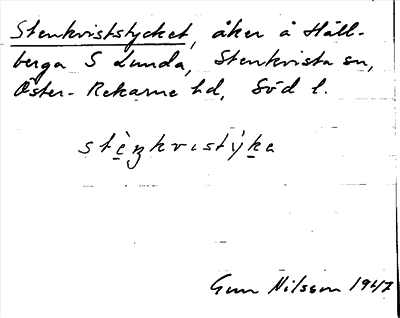 Stenkviststycket, åker å Häll-
berga S Lunda, Stenkvista sn,
Öster-Rekarne hd, Söd l.
stènkvistýka
Gun Nilsson 1947